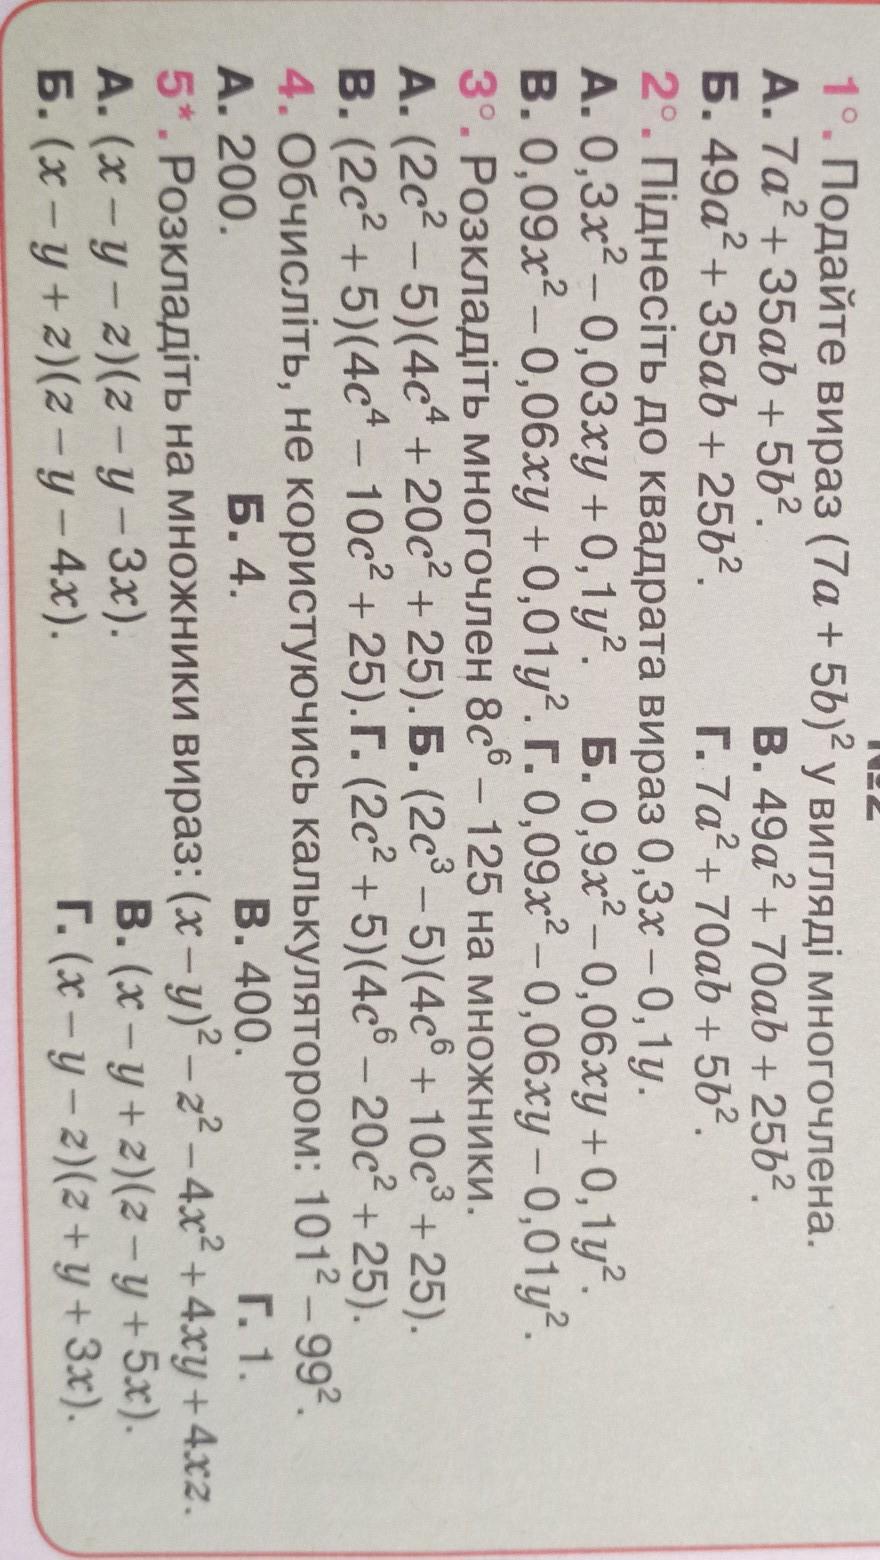 №2
1°. Подайте вираз (7a + 5b)² у вигляді многочлена.
А. 7a² + 35ab + 5b². В. 49a² + 70ab + 25b².
Б. 49a² + 35ab + 25b². Г. 7a² + 70ab + 5b².
2°. Піднесіть до квадрата вираз 0,3x – 0,1y.
А. 0,3x² – 0,03xy + 0,1y². Б. 0,9x² – 0,06xy + 0,1y².
В. 0,09x² – 0,06xy + 0,01y². Г. 0,09x² – 0,06xy – 0,01y².
3°. Розкладіть многочлен 8c⁶ – 125 на множники.
А. (2c² – 5)(4c⁴ + 20c² + 25). Б. (2c³ – 5)(4c⁶ + 10c³ + 25).
В. (2c² + 5)(4c⁴ – 10c² + 25). Г. (2c² + 5)(4c⁶ – 20c² + 25).
4. Обчисліть, не користуючись калькулятором: 101² – 99².
А. 200. Б. 4. В. 400. Г. 1.
5*. Розкладіть на множники вираз: (x – y)² – z² – 4x² + 4xy + 4xz.
А. (x – y – z)(z – y – 3x). В. (x – y + z)(z – y + 5x).
Б. (x – y + z)(z – y – 4x). Г. (x – y – z)(z + y + 3x).